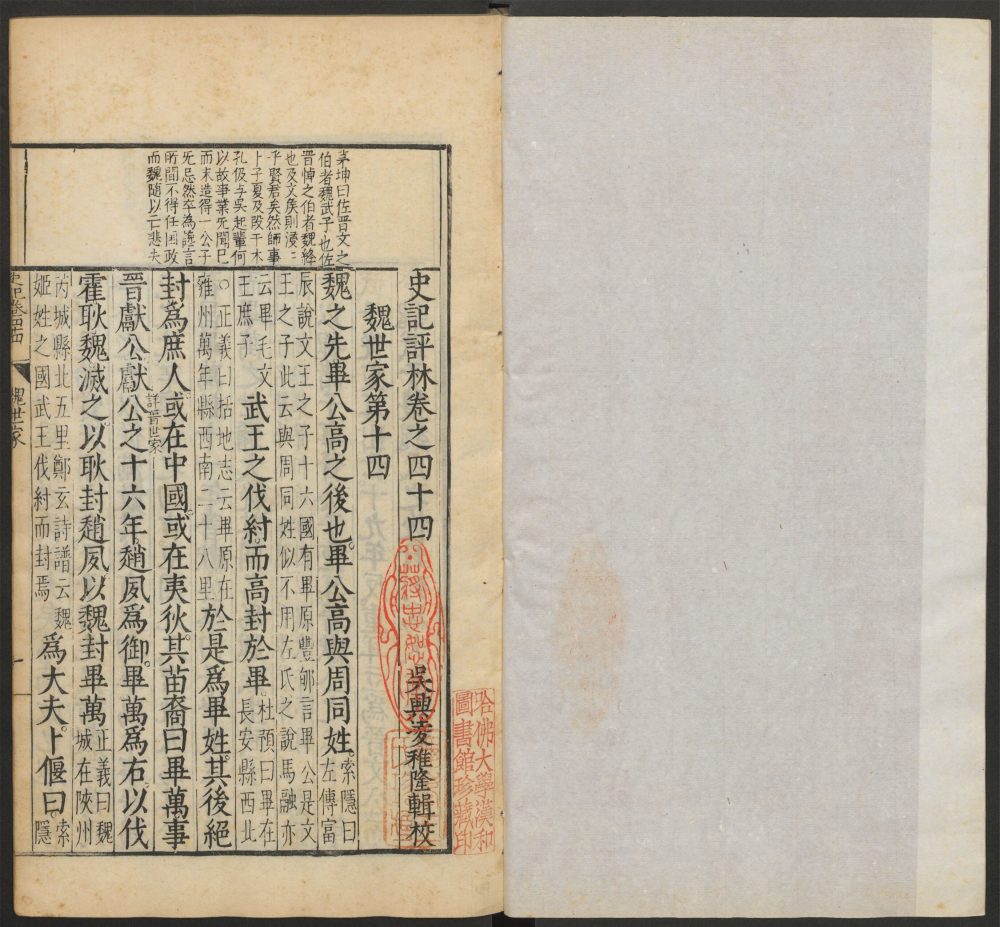 哈佛大學漢和
圖書館珍藏印
茅坤曰佐晉文之
伯者魏武子也佐
晉悼之伯者魏絳
也及文矦則漫〻
乎賢君矣然師事
卜子夏及段干木
孔伋与吳起輩何
以故事業旡聞已
而末造得一公子
旡忌然卒為讒言
所間不得任國政
而魏隨以亡悲夫
史記評林卷之四十四 吳興凌稚隆輯校
魏世家第十四
魏之先畢公高之後也。畢公高與周同姓。索隱曰左傳富
辰說文王之子十六國有畢原豐郇言畢公是文
王之子此云與周同姓似不用左氏之說馬融亦
云畢毛文王庶子 武王之伐紂。而高封於畢。杜預曰畢在長安縣西北
○正義曰括地志云畢原在雍州萬年縣西南二十八里 於是爲畢姓。其後絕
封爲庶人。或在中國。或在夷狄。其苗裔曰畢萬。事
詳晉世家
晉獻公。獻公之十六年。趙夙爲御。畢萬爲右。以伐
霍耿魏滅之。以耿封趙夙。以魏封畢萬 正義曰魏城在陝州
芮城縣北五里鄭玄詩譜云魏姬姓之國武王伐紂而封焉 爲大夫。卜偃曰。索隱
史記卷四十四 魏世家 一